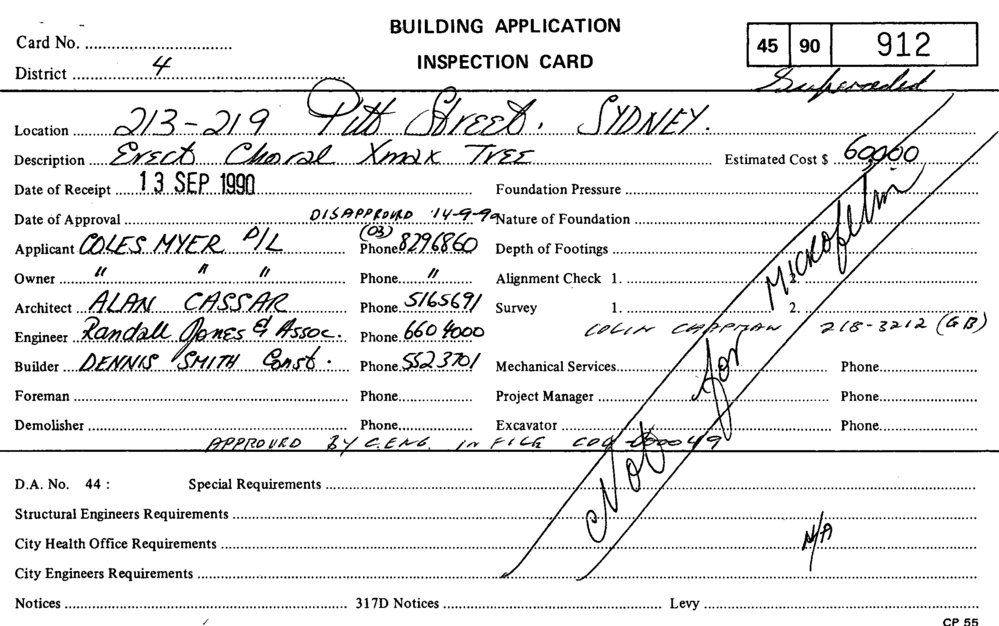 BUILDING APPLICATION
Card No. 45 90 912
INSPECTION CARD
District 4
Superseded
Location 213-219 Pitt Street. SYDNEY.
Description Erect Choral Xmax Tree Estimated Cost $ 60,000
Date of Receipt 13 SEP 1990 Foundation Pressure
Date of Approval DISAPPROVED 14-9-90 Nature of Foundation
Applicant COLES MYER P/L Phone (03) 8296860 Depth of Footings
Owner " " " Phone " Alignment Check 1. 2.
Architect ALAN CASSAR Phone 5165691 Survey 1. 2.
COLIN CHAPMAN 218-3212 (GB)
Engineer Randall Jones & Assoc. Phone 660 4000
Builder DENNIS SMITH Const. Phone 5523701 Mechanical Services Phone
Foreman Phone Project Manager Phone
Demolisher Phone Excavator Phone
APPROVED BY C.ENG. IN FILE
Not for Microfilm
D.A. No. 44 : Special Requirements
Structural Engineers Requirements
City Health Office Requirements N/A
City Engineers Requirements
Notices 317D Notices Levy
CP 55